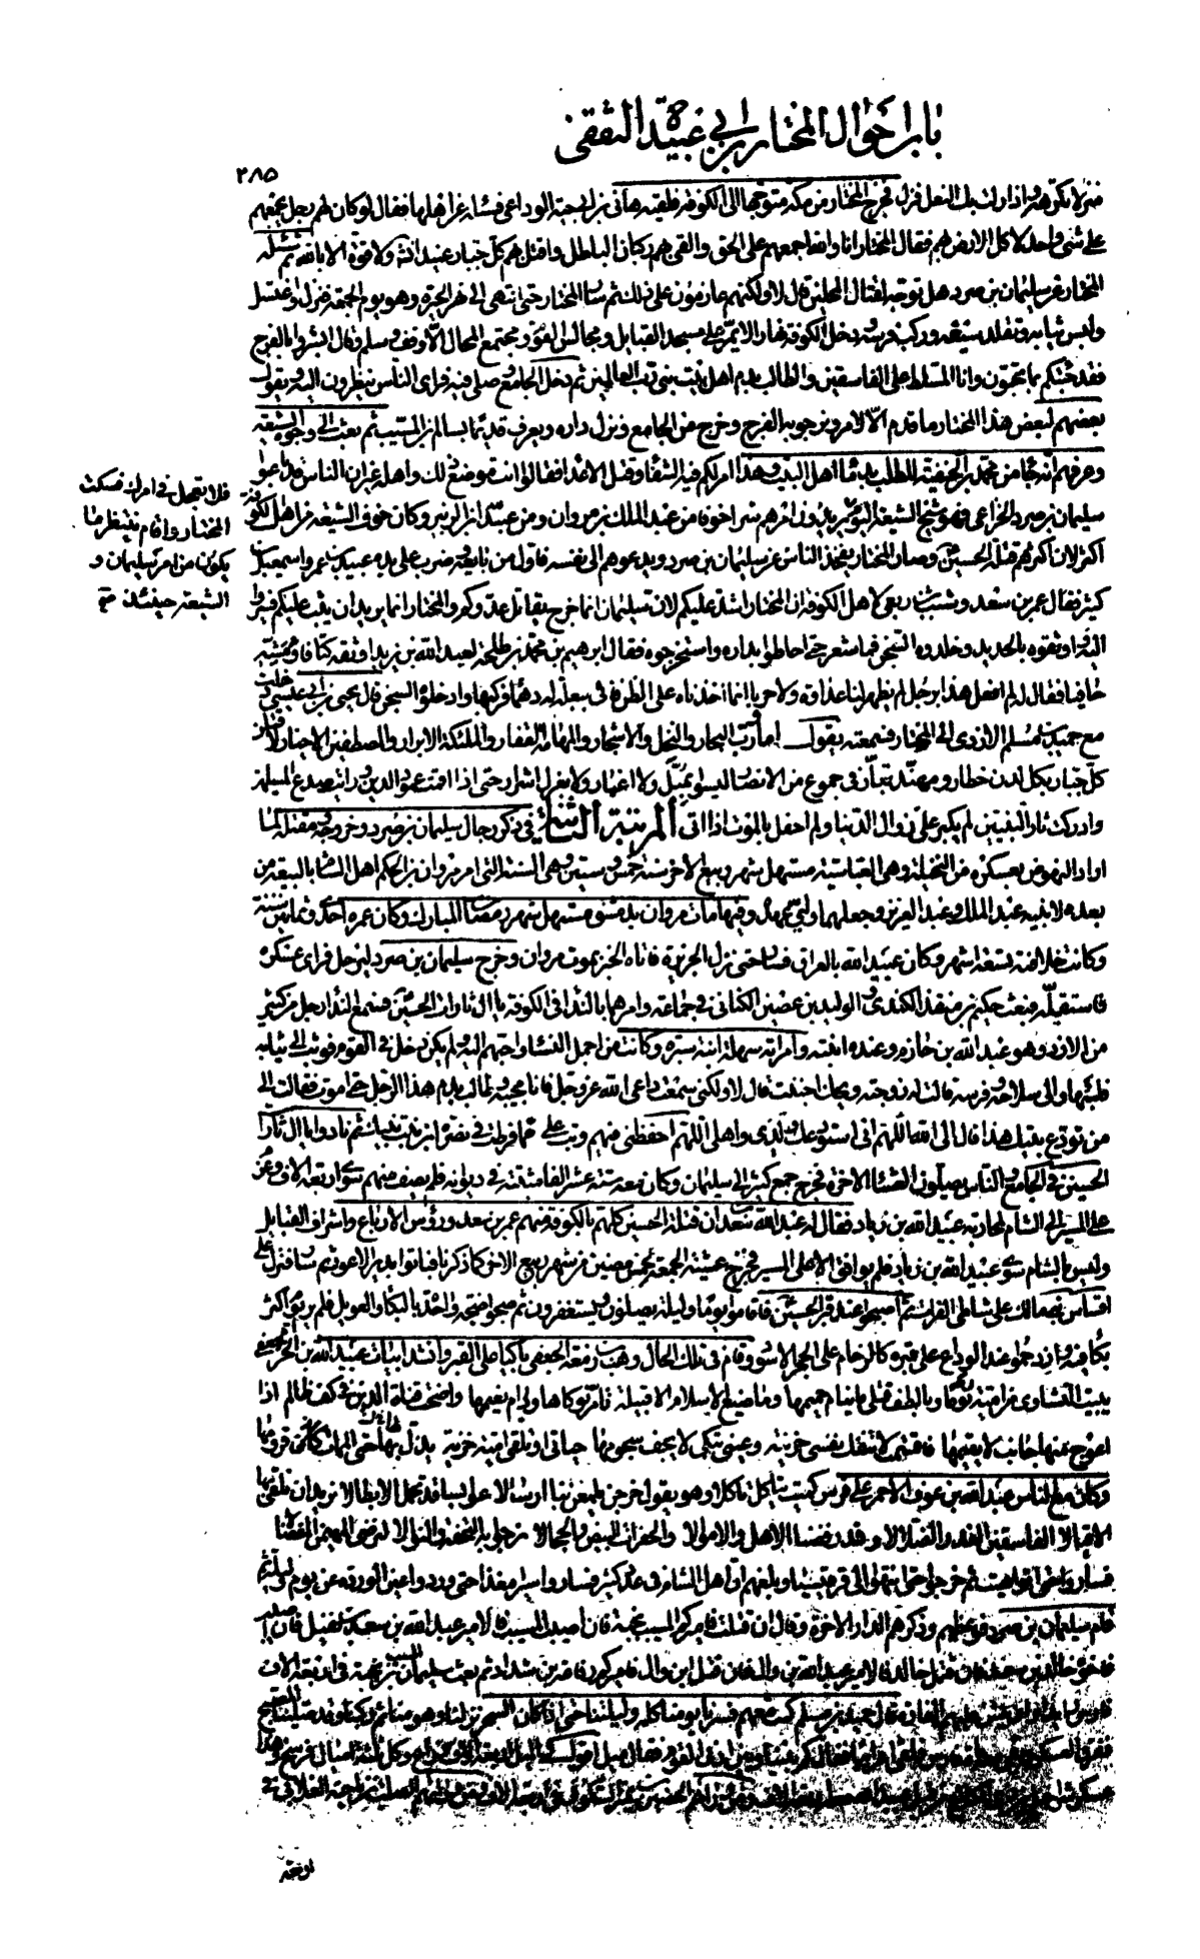 باب احوال المختار بن أبي عبيدة الثقفي
٢٨٥
منزلا تكرهونه اذا زلت بك النعل فزل فخرج المختار من مكة متوجها الى الكوفة فلقيه هاني بن ابي حية الوداعي فسأله عن اهلها فقال لو كان لهم رجل يجمعهم
على شئ واحد لاكل الارض بهم فقال المختار انا والله اجمعهم على الحق والقى بهم ركبان الباطل واقتل بهم كل جبار عنيد انشاء الله ولا قوة الا بالله ثم سئله
المختار عن سليمان بن صرد هل توجه لقتال المحلين قال لا ولكنهم عازمون على ذلك ثم سار المختار حتى انتهى الى نهر الحيرة وهو يوم الجمعة فنزل واغتسل
ولبس ثيابه وتقلد سيفه وركب فرسه ودخل الكوفة نهارا لا يمر على مسجد القبايل ومجالس القوم ومجتمع المحال الا وقف وسلم وقال ابشروا بالفرج
فقد جئتكم بما تحبون وانا المسلط على الفاسقين والطالب بدم اهل بيت نبي رب العالمين ثم دخل الجامع وصلى فيه فراى الناس ينظرون اليه ويقول
بعضهم لبعض هذا المختار ما قدم الا لامر ونرجو به الفرج وخرج من الجامع ونزل داره ويعرف قديما بسالم بن المسيب ثم بعث الى وجوه الشيعة
وعرفهم انه جاء من محمد بن الحنفية للطلب بدماء اهل البيت وهذا امر لكم فيه الشفاء وقتل الاعداء فقالوا انت موضع ذلك واهله غير ان الناس قد بايعوا
سليمان بن صرد الخزاعي فهو شيخ الشيعة اليوم
فلا تعجل في امرك فسكت
المختار واقام ينتظر ما
يكون من امر سليمان و
الشيعة حينئذ
اكثر لان اكثرهم قتلة الحسين وصار المختار يفخذ الناس عن سليمان بن صرد ويدعوهم الى نفسه فاول من بايعه وضرب على يده عبيدة بن عمر واسمعيل بن
كثير فقال عمر بن سعد وشبث بن ربعي لاهل الكوفة ان المختار اشد عليكم لان سليمان انما خرج يقاتل عدوكم والمختار انما يريد ان يثب عليكم فسيروا
اليه واوثقوه بالحديد وخلدوه السجن فما شعر حتى احاطوا بداره واستخرجوه فقال ابرهيم بن محمد بن طلحة لعبد الله بن يزيد اوثقه كتافا ومشه
حافيا فقال له لم افعل هذا برجل لم يظهر لنا عداوة ولا حربا انما اخذناه على الظن فاتى ببغلة له دهماء فركبها وادخلوه السجن قال يحيى بن ابي عيسى دخلت
مع حميد بن مسلم الازدي الى المختار فسمعته يقول اما ورب البحار والنخل والاشجار والمهامه القفار والملئكة الابرار والمصطفين الاخيار لاقتلن
كل جبار بكل لدن خطار ومهند بتار في جموع من الانصار ليسوا بميل ولا اغمار ولا بعزل اشرار حتى اذا اقمت عمود الدين ورايت صدع المسلمين
وادركت ثار النبيين لم يكبر على زوال الدنيا ولم احفل بالموت اذا اتى المرتبة الثانية في ذكر رجال سليمان بن صرد وخروجه ومقتله لما
اراد النهوض بعسكره من النخيلة وهي العباسية مستهل شهر ربيع الاخر سنة خمس وستين وهي السنة التي امر مروان بن الحكم اهل الشام بالبيعة من
بعده لابنيه عبد الملك وعبد العزيز وجعلهما وليي عهده وفيها مات مروان بدمشق مستهل شهر رمضان المبارك وكان عمره احدى وثمانين سنة
وكانت خلافته تسعة اشهر وكان عبيد الله بالعراق فسار حتى نزل الجزيرة فاتاه الخبر بموت مروان وخرج سليمان بن صرد ليرحل فراى عسكره
فاستقله فبعث حكيم بن منقذ الكندي والوليد بن عضين الكناني في جماعة وامرهما بالنداء في الكوفة يا ال ثارات الحسين فسمع النداء رجل من كثير
من الازد وهو عبد الله بن حازم وعنده ابنته وامراته سهلة ابنة سبرة وكانت من اجمل النساء واحبهم اليه ولم يكن دخل في القوم فوثب الى ثيابه
فلبسها والى سلاحه وفرسه قالت له زوجته ويحك اجننت قال لا ولكني سمعت داعي الله عز وجل فانا مجيبه وطالب بدم هذا الرجل حتى اموت فقالت الى
من تودع بيتك هذا قال الى الله اللهم اني استودعك ولدي واهلي اللهم احفظني فيهم وتب علي مما فرطت في نصرة ابن بنت نبيك ثم نادوا يا ال ثارات
الحسين في الجامع والناس يصلون العشاء الاخرة فخرج جمع كثير الى سليمان وكان معه ستة عشر الفا مثبتة في ديوانه فلم يصف منهم سوى اربعة الاف وعزم
على المسير الى الشام لمحاربة عبيد الله بن زياد فقال له عبد الله بن سعد ان قتلة الحسين كلهم بالكوفة منهم عمر بن سعد ورؤس الارباع واشراف القبايل
وليس بالشام سوى عبيد الله بن زياد فلم يوافق الا على المسير فخرج عشية الجمعة لخمس مضين من شهر ربيع الاخر كما ذكرنا فباتوا بدير الاعور ثم سار فنزل على
اقساس بني مالك على شاطئ الفرات ثم اصبحوا عند قبر الحسين فاقاموا يوما وليلة يصلون ويستغفرون ثم ضجوا ضجة واحدة بالبكاء والعويل فلم ير يوم اكثر
بكاء فيه وازدحموا عند الوداع على قبره كالزحام على الحجر الاسود وقام في تلك الحال وهب بن زمعة الجعفي باكيا على القبر وانشد ابيات عبيد الله بن الحر الجعفي
يبيت النشاوى من امية نوما وبالطف قتلى ما ينام حميمها وما ضيع الاسلام الا قبيلة تامر نوكاها ودام نعيمها واضحت قناة الدين في كف ظالم اذا
اعوج منها جانب لا يقيمها فاقسمت لا تنفك نفسي حزينة وعيني تبكي لا يجف سجومها حياتي او تلقى امية خزية يذل لها حتى الممات قرومها
وكان مع الناس عبد الله بن عوف الاحمر على فرس كميت يتاكل تاكلا وهو يقول خرجن يلمعن بنا ارسالا عوابسا قد تحمل الابطالا نريد ان نلقى بها
الاقيالا الفاسقين الغدر الضلالا وقد رفضنا الاهل والاموالا والخفرات البيض والحجالا نرجو به التحفة والنوالا لنرضي المهيمن المفضالا
فساروا حتى اتوا هيت ثم خرجوا حتى انتهوا الى قرقيسيا وبلغهم ان اهل الشام في عدد كثير فساروا سيرا مغذا حتى وردوا عين الوردة عن يوم وليلة ثم
قام سليمان بن صرد فوعظهم وذكرهم الدار الاخرة وقال ان قتلت فاميركم المسيب بن نجبة فان اصيب المسيب فالامير عبد الله بن سعد بن نفيل فان اصيب
فاخوه خالد بن سعد فان قتل خالد فالامير عبد الله بن وال فان قتل ابن وال فاميركم رفاعة بن شداد ثم بعث سليمان المسيب بن نجبة في اربعة الاف
لوقعة